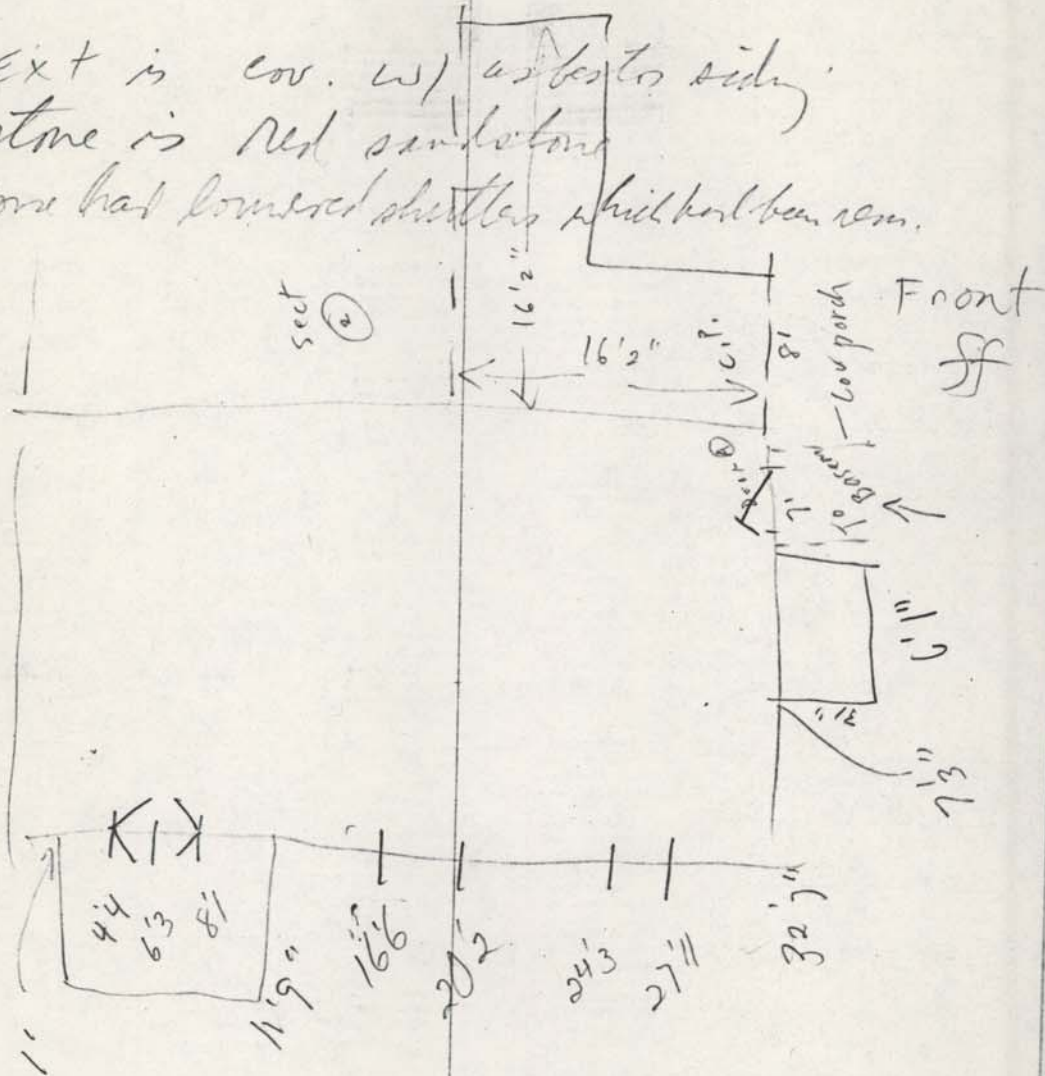 Ext is cov. w/ asbestos siding
stone is red sandstone
had louvered shutters which had been rem.
Sect 2
16'2"
16'2"
C.P.
8'
Low porch
Front
7'
To Basem
6'1"
31"
7'3"
4'4
6'3
8'1
11'9"
16'6"
20'2
24'3
27'11
32'
1'